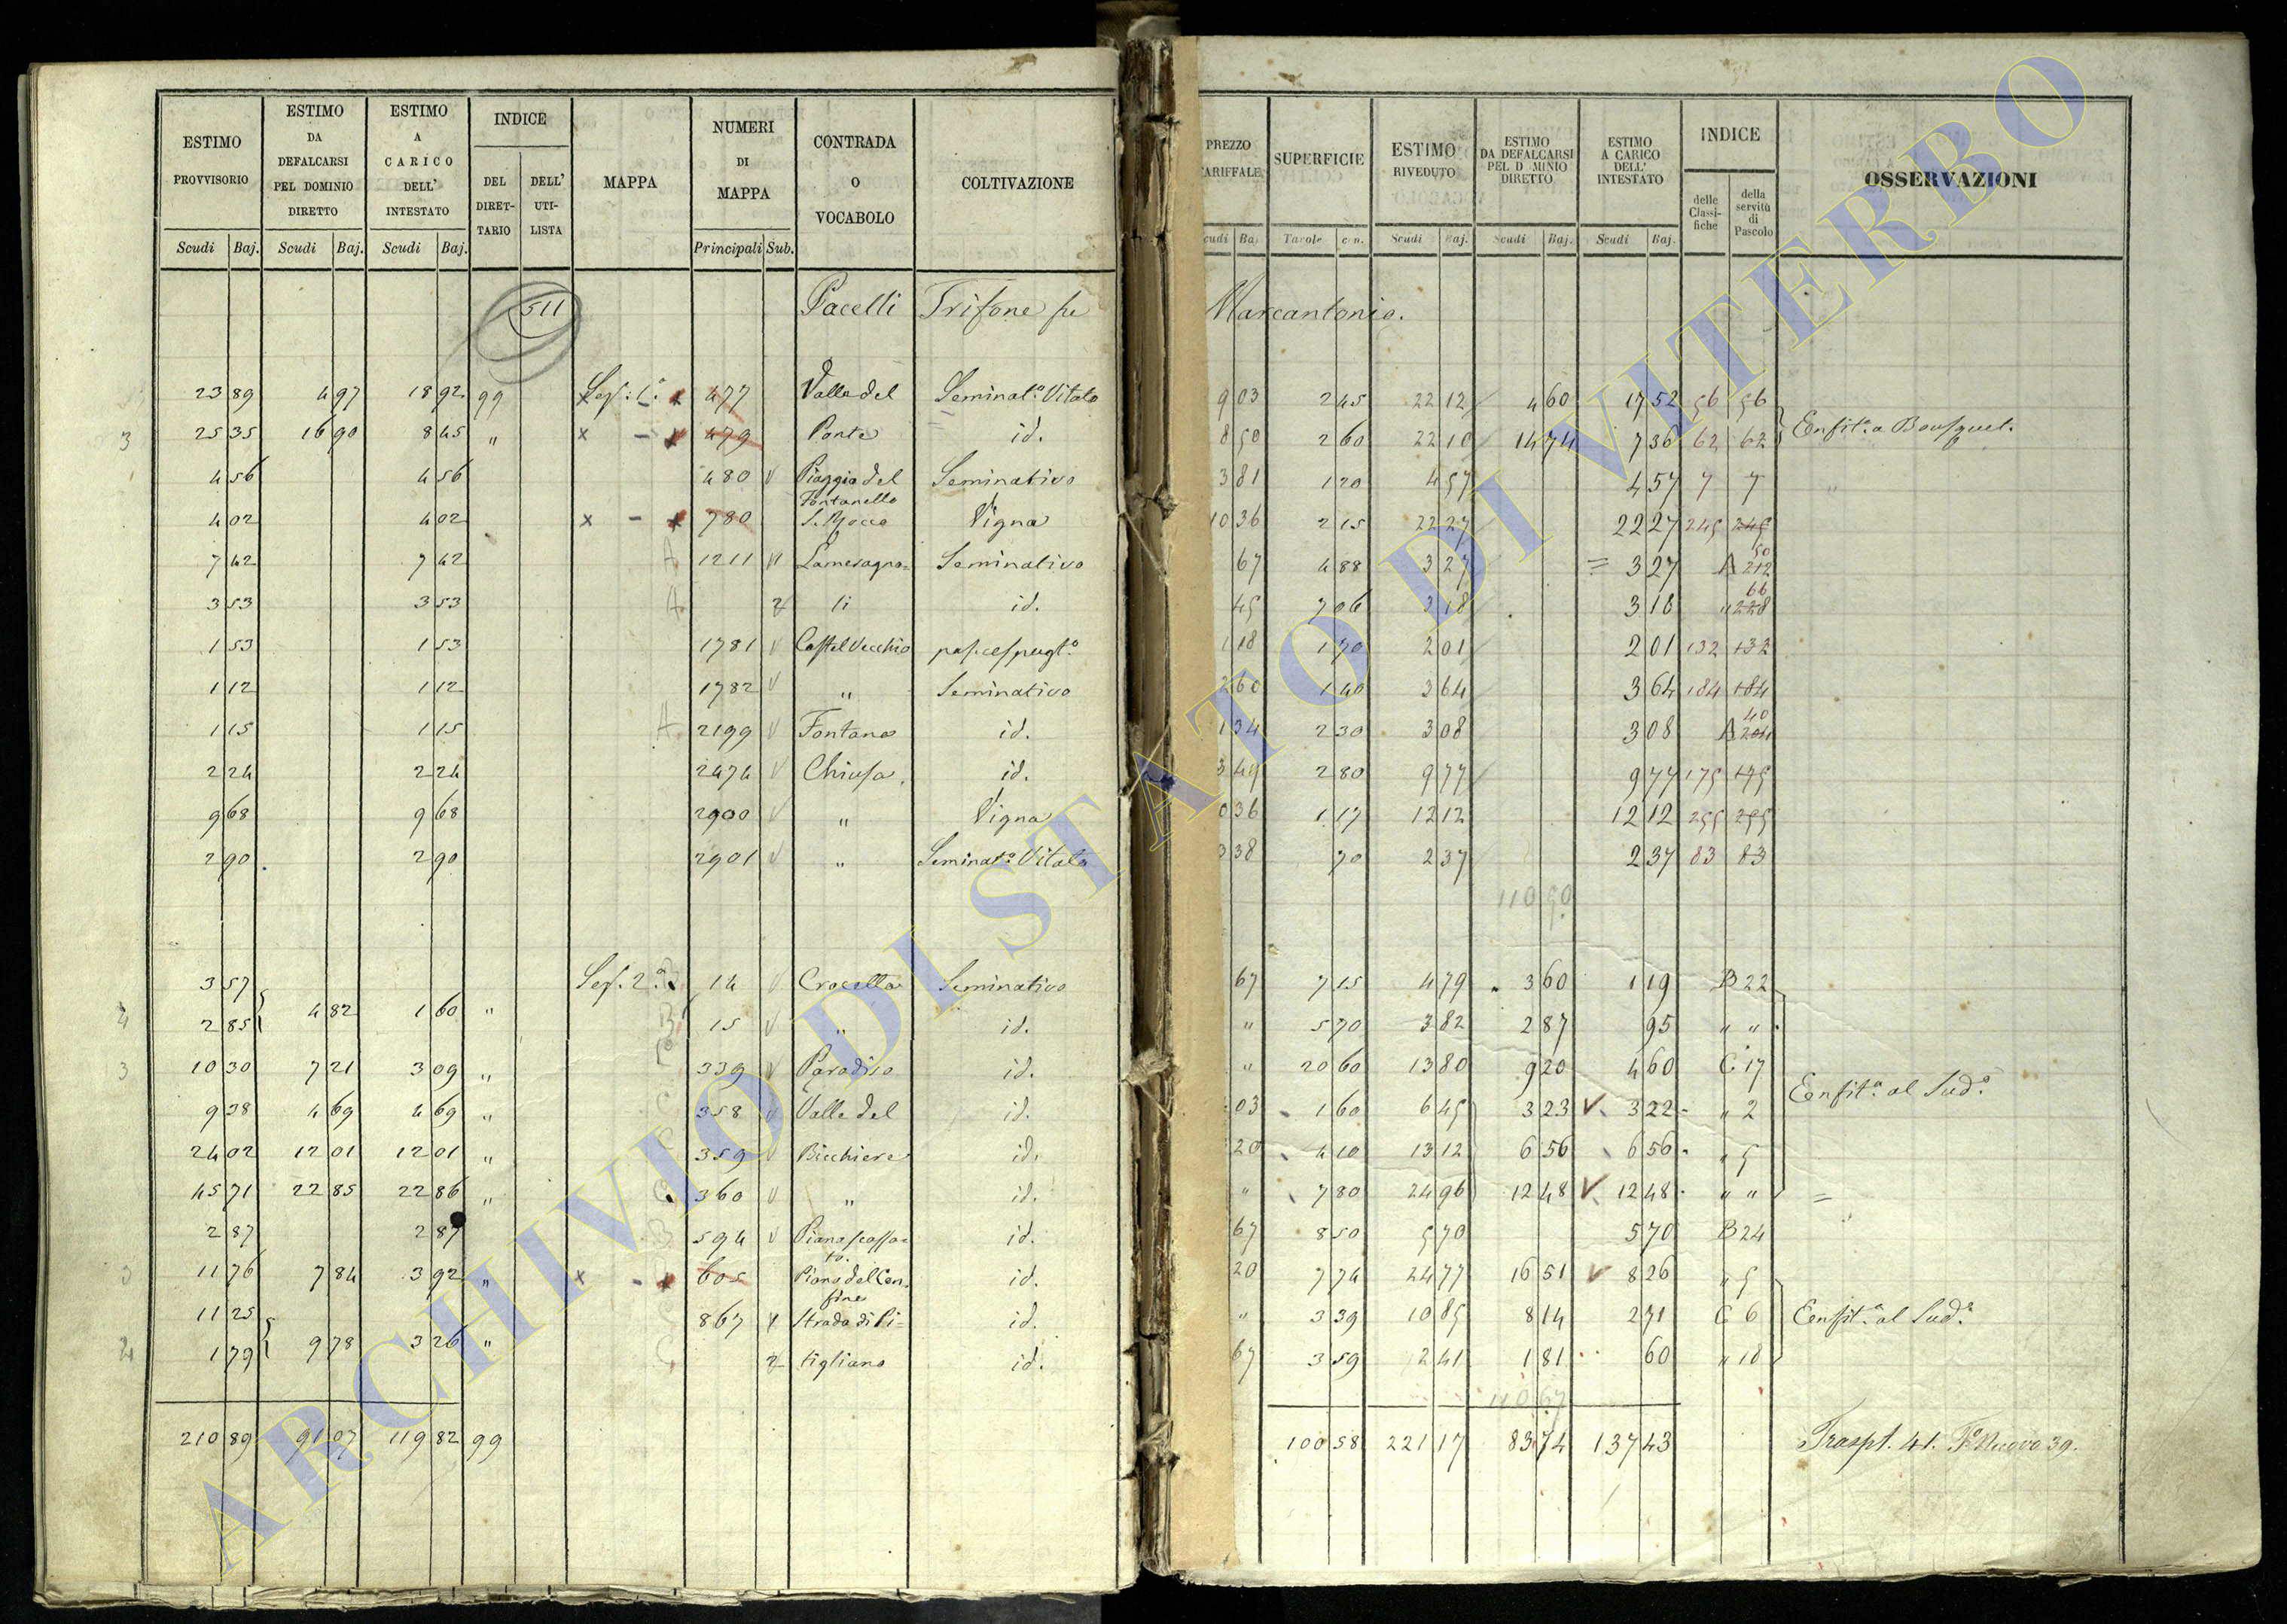 ESTIMO PROVVISORIO | ESTIMO DA DEFALCARSI PEL DOMINIO DIRETTO | ESTIMO A CARICO DELL' INTESTATO | INDICE | MAPPA | NUMERI DI MAPPA | CONTRADA O VOCABOLO | COLTIVAZIONE
DEL DIRET-TARIO | DELL' UTI-LISTA
Scudi | Baj. | Scudi | Baj. | Scudi | Baj. | Principali | Sub.
511 Pacelli Trifone
23 89 | 4 97 | 18 92 | 99 | Sez. 1.ª | 477 | Valle del | Seminat.º Vitato
3 | 25 35 | 16 90 | 8 45 | " | x - x | 479 | Ponte | id.
4 56 | 4 56 | 480 | Piaggia del Fontanello | Seminativo
4 02 | 4 02 | x - x | 780 | S. Rocco | Vigna
7 42 | 7 42 | A | 1211 | 1 | Lamesagna= | Seminativo
3 53 | 3 53 | A | 2 | li | id.
1 53 | 1 53 | 1781 | Castel Vecchio | pas. cespugt.º
1 12 | 1 12 | 1782 | " | Seminativo
1 15 | 1 15 | A | 2199 | Fontana | id.
2 24 | 2 24 | 2474 | Chiusa | id.
9 68 | 9 68 | 2900 | " | Vigna
2 90 | 2 90 | 2901 | " | Seminat.º Vitato
3 57 | Sez. 2.ª | 14 | Crocella | Seminativo
4 | 2 85 | 4 82 | 1 60 | " | B | 15 | " | id.
3 | 10 30 | 7 21 | 3 09 | " | 339 | Paradiso | id.
9 38 | 4 69 | 4 69 | " | C | 358 | Valle del | id.
24 02 | 12 01 | 12 01 | " | C | 359 | Bicchiere | id.
45 71 | 22 85 | 22 86 | " | C | 360 | " | id.
2 87 | 2 87 | B | 594 | Piano scassa=to. | id.
3 | 11 76 | 7 84 | 3 92 | " | x - x | 605 | Piano del Confine | id.
11 25 | C | 867 | 1 | Strada di Pi= | id.
4 | 1 79 | 9 78 | 3 26 | " | C | 2 | tigliano | id.
210 89 | 91 07 | 119 82 | 99
PREZZO TARIFFALE | SUPERFICIE | ESTIMO RIVEDUTO | ESTIMO DA DEFALCARSI PEL D MINIO DIRETTO | ESTIMO A CARICO DELL' INTESTATO | INDICE | OSSERVAZIONI
delle Classi-fiche | della servitù di Pascolo
cudi | Ba | Tavole | c n. | Scudi | Baj. | Scudi | Baj. | Scudi | Baj.
Marcantonio.
9 03 | 2 45 | 22 12 | 4 60 | 17 52 | 56 | 56
8 50 | 2 60 | 22 10 | 14 74 | 7 36 | 62 | 62 | Enfit.ª a Bousquet.
3 81 | 1 20 | 4 57 | 4 57 | 7 | 7
10 36 | 2 15 | 22 27 | 22 27 | 245 | 245
67 | 4 88 | 3 27 | = 3 27 | A | 50 212
45 | 7 06 | 3 18 | 3 18 | " | 66 228
1 18 | 1 70 | 2 01 | 2 01 | 132 | 132
2 60 | 1 40 | 3 64 | 3 64 | 184 | 184
1 34 | 2 30 | 3 08 | 3 08 | A | 40 204
3 49 | 2 80 | 9 77 | 9 77 | 175 | 175
0 36 | 1 17 | 12 12 | 12 12 | 255 | 255
3 38 | 70 | 2 37 | 2 37 | 83 | 83
110 50
67 | 7 15 | 4 79 | 3 60 | 1 19 | B 22
" | 5 70 | 3 82 | 2 87 | 95 | " "
" | 20 60 | 13 80 | 9 20 | 4 60 | C 17
03 | 1 60 | 6 45 | 3 23 | 3 22 | " 2 | Enfit.ª al Sud.º
20 | 4 10 | 13 12 | 6 56 | 6 56 | " 5
" | 7 80 | 24 96 | 12 48 | 12 48 | " "
67 | 8 50 | 5 70 | 5 70 | B 24
20 | 7 74 | 24 77 | 16 51 | 8 26 | " 5
" | 3 39 | 10 85 | 8 14 | 2 71 | C 6 | Enfit.ª al Sud.º
67 | 3 59 | 2 41 | 1 81 | 60 | " 18
110 67
100 58 | 221 17 | 83 74 | 137 43 | Traspt. 41. F.º Nuovo 39.
ARCHIVIO DI STATO DI VITERBO